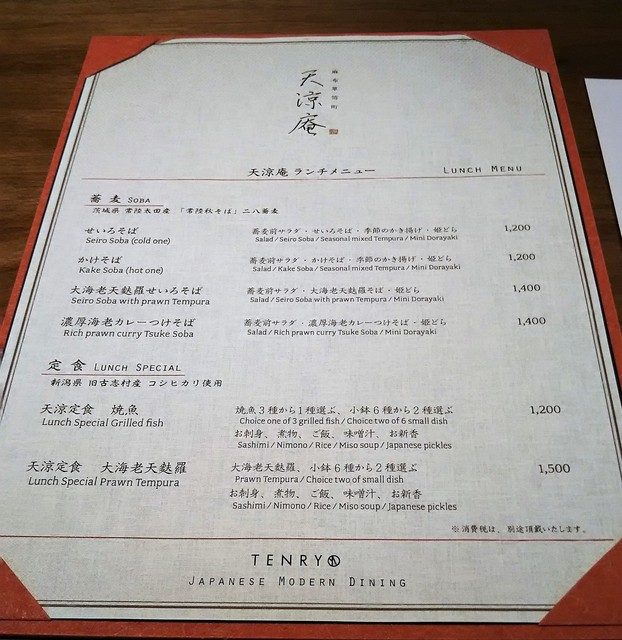 天涼庵
麻布十番町
天涼庵 ランチメニュー LUNCH MENU
蕎麦 SOBA
茨城県 常陸太田産 「常陸秋そば」二八蕎麦
せいろそば 蕎麦前サラダ・せいろそば・季節のかき揚げ・姫どら 1,200
Seiro Soba (cold one) Salad / Seiro Soba / Seasonal mixed Tempura / Mini Dorayaki
かけそば 蕎麦前サラダ・かけそば・季節のかき揚げ・姫どら 1,200
Kake Soba (hot one) Salad / Kake Soba / Seasonal mixed Tempura / Mini Dorayaki
大海老天麩羅せいろそば 蕎麦前サラダ・大海老天麩羅そば・姫どら 1,400
Seiro Soba with prawn Tempura Salad / Seiro Soba with prawn Tempura / Mini Dorayaki
濃厚海老カレーつけそば 蕎麦前サラダ・濃厚海老カレーつけそば・姫どら 1,400
Rich prawn curry Tsuke Soba Salad / Rich prawn curry Tsuke Soba / Mini Dorayaki
定食 LUNCH SPECIAL
新潟県 旧古志村産 コシヒカリ使用
天涼定食 焼魚 焼魚3種から1種選ぶ、小鉢6種から2種選ぶ 1,200
Lunch Special Grilled fish Choice one of 3 grilled fish / Choice two of 6 small dish
お刺身、煮物、ご飯、味噌汁、お新香
Sashimi / Nimono / Rice / Miso soup / Japanese pickles
天涼定食 大海老天麩羅 大海老天麩羅、小鉢6種から2種選ぶ 1,500
Lunch Special Prawn Tempura Prawn Tempura / Choice two of small dish
お刺身、煮物、ご飯、味噌汁、お新香
Sashimi / Nimono / Rice / Miso soup / Japanese pickles
※消費税は、別途頂戴いたします。
TENRYO
JAPANESE MODERN DINING